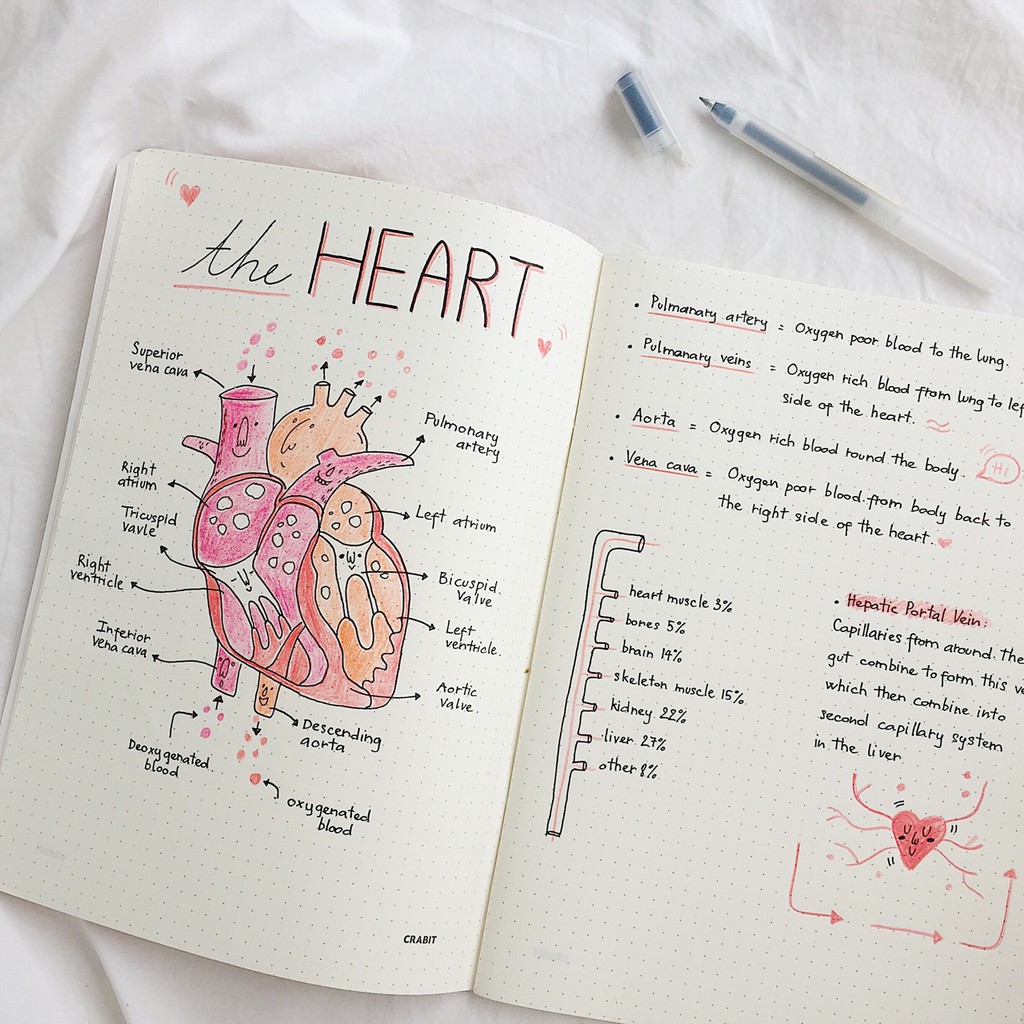 the HEART
Superior
vena cava
Pulmonary
artery
Right
atrium
Left atrium
Tricuspid
vavle
Bicuspid.
Valve
Right
ventricle
Left
ventricle.
Inferior
vena cava
Aortic
valve.
Descending
aorta
Deoxygenated
blood
oxygenated
blood
CRABIT
• Pulmanary artery = Oxygen poor blood to the lung.
• Pulmanary veins = Oxygen rich blood from lung to lef
side of the heart.
• Aorta = Oxygen rich blood round the body.
Hi
• Vena cava = Oxygen poor blood.from body back to
the right side of the heart.
heart muscle 3%
bones 5%
brain 14%
skeleton muscle 15%
kidney 22%
liver 27%
other 8%
• Hepatic Portal Vein:
Capillaries from around. The
gut combine to form this ve
which then combine into
second capillary system
in the liver